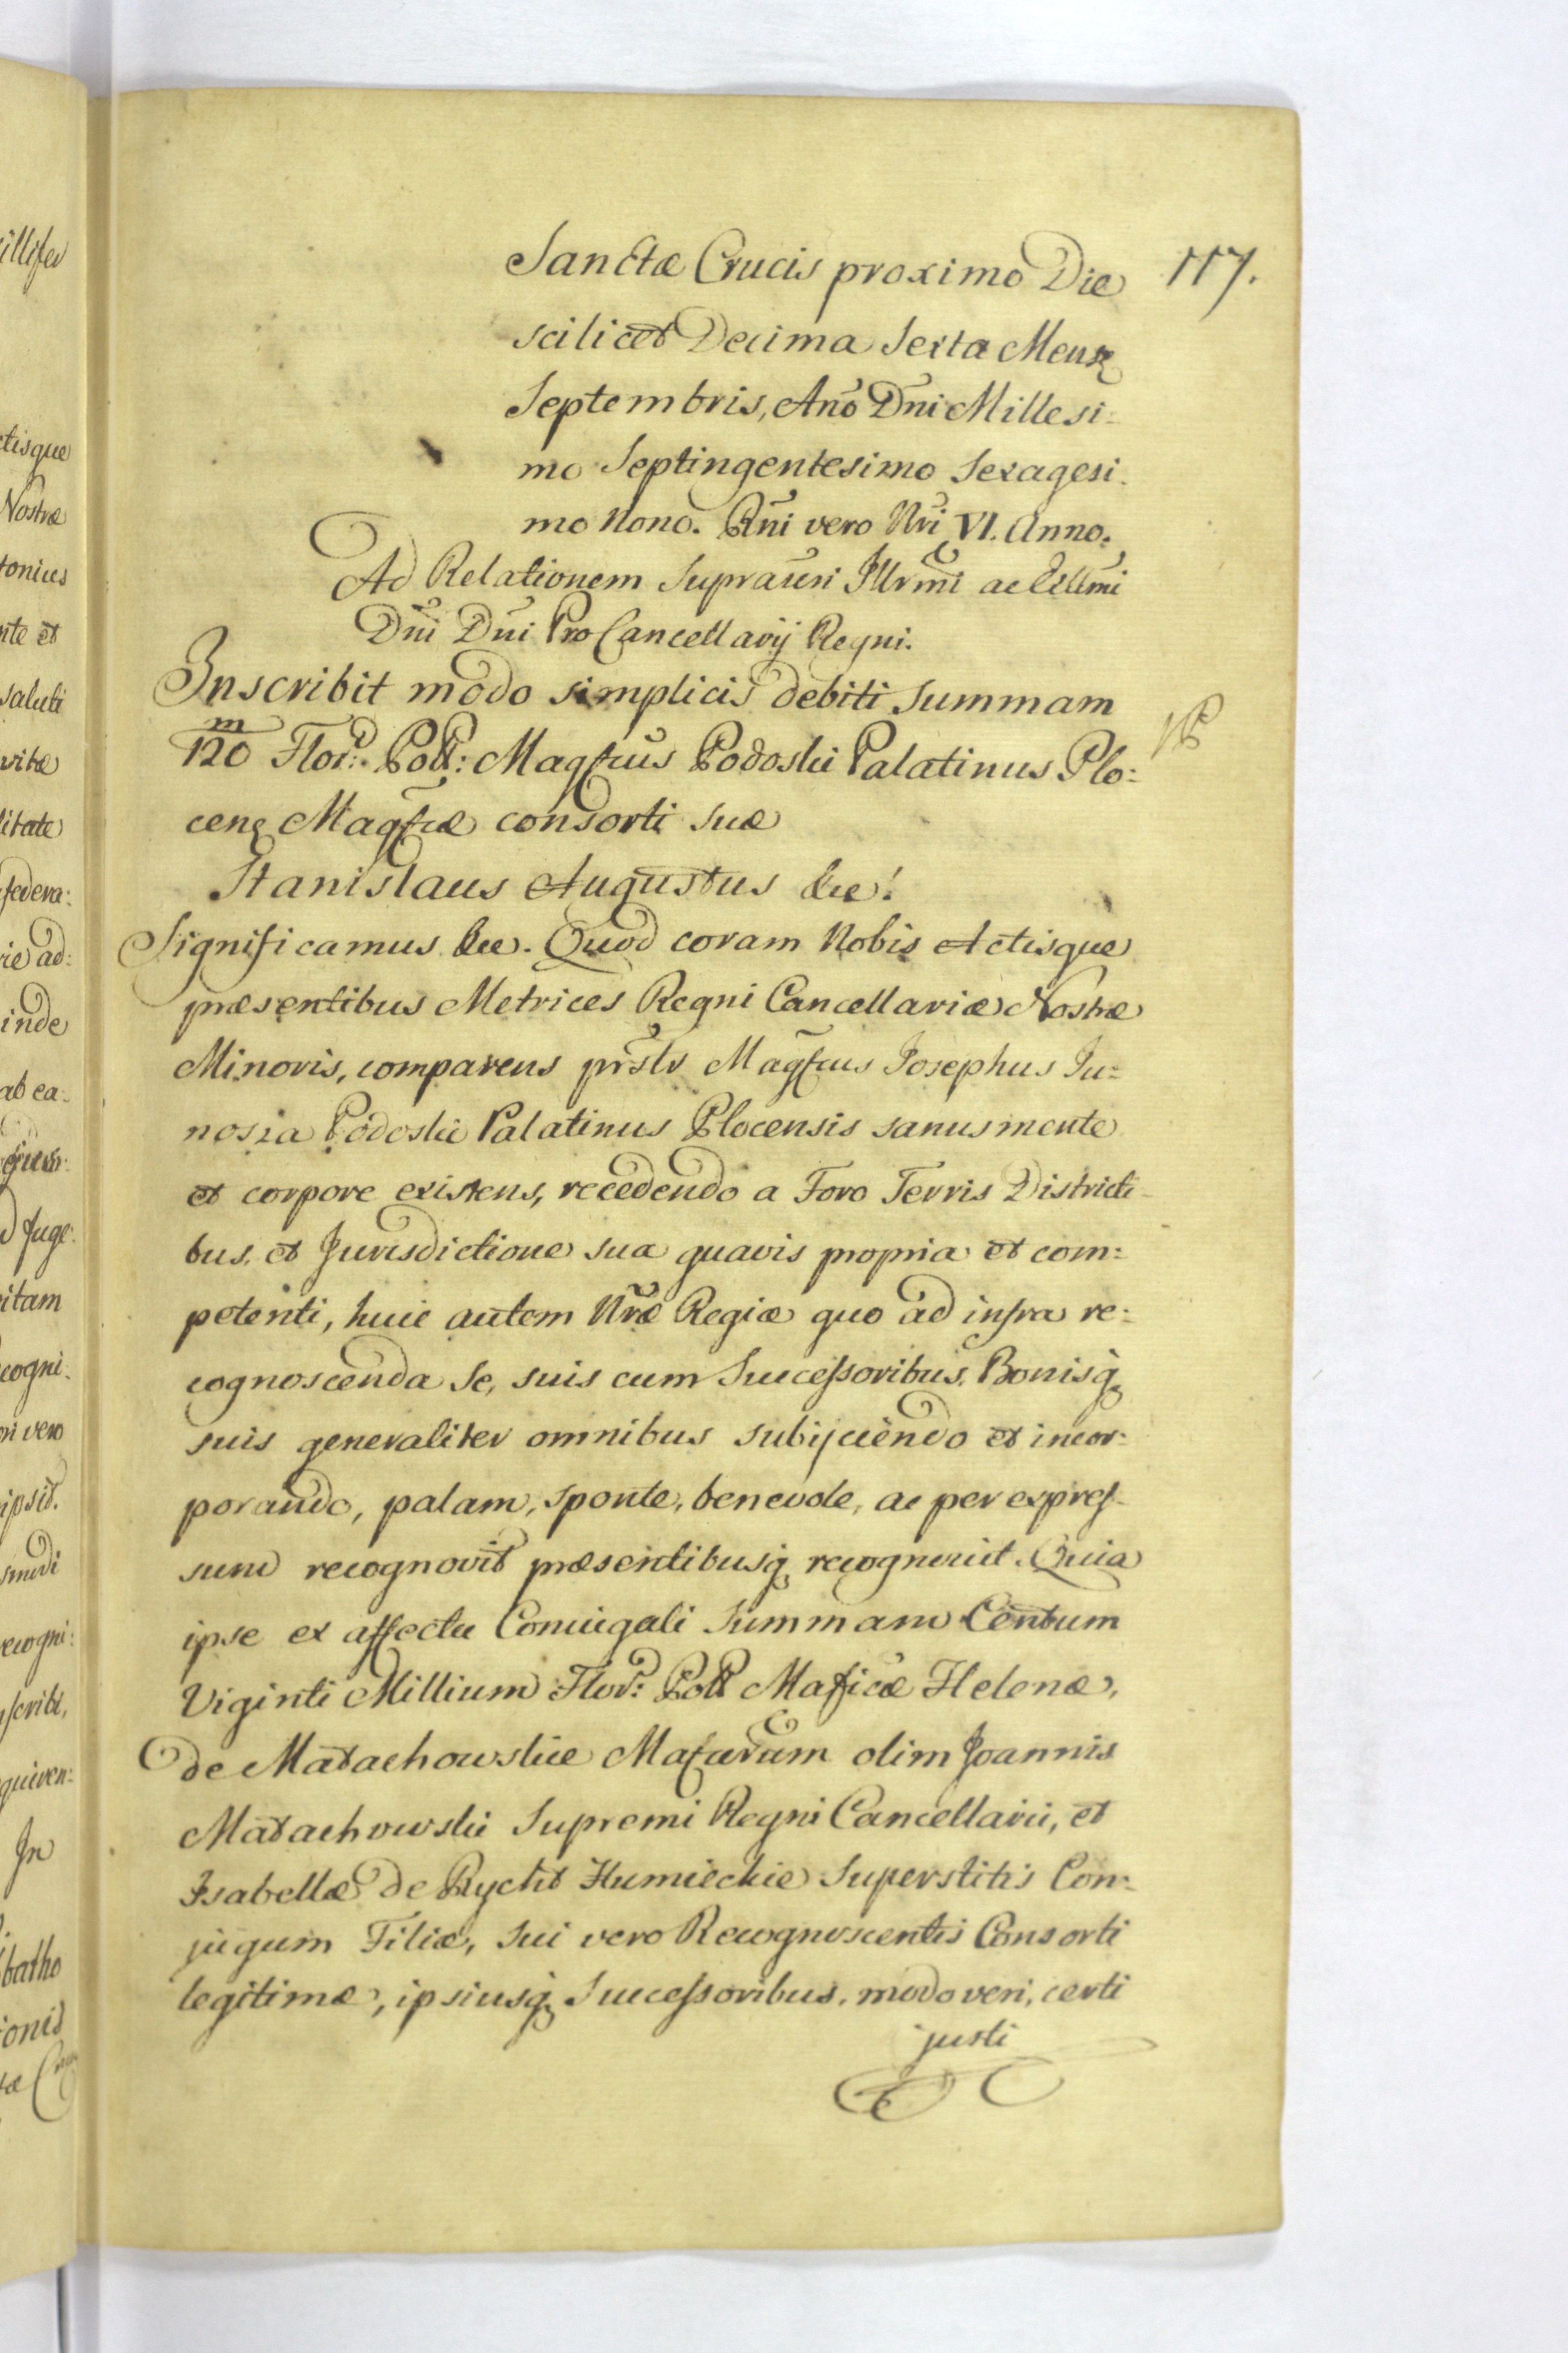 117.
Sanctæ Crucis proximo Die
scilicet Decima Sexta Mens
Septembris, Año Dñi Millesi-
mo Septingentesimo Sexagesi-
mo Nono. Rñi vero Nri VI. Anno.
Ad Relationem Suprascri Jllrmi ac Exllmi
Dñi Dñi ProCancellarij Regni.
Inscribit modo simplicis debiti Summam
m
120 Flor: Poll: Magfcus Podoski Palatinus Plo:
cens Magfcæ consorti suæ
Stanislaus Augustus &c:
Significamus &c. Quod coram Nobis Actisque
præsentibus Metrices Regni Cancellariæ Nostræ
Minoris, comparens prslr Magfcus Josephus Ju:
nosza Podoski Palatinus Plocensis sanus mente
et corpore existens, recedendo a Foro Terris Districti-
bus, et Jurisdictione sua quavis propria et com:
petenti, huic autem Nræ Regiæ quo ad infra re:
cognoscenda Se, suis cum Successoribus, Bonisq
suis generaliter omnibus subijciendo et incor:
porando, palam, sponte, benevole, ac per expres-
sum recognovit præsentibusq recognoscit. Quia
ipse ex affectu Coniugali Summam Centum
Viginti Millium Flor: Poll Maficæ Helenæ,
de Małachowskie Mafcorum olim Joannis
Małachowski Supremi Regni Cancellarii, et
Isabellæ de Rycht Humieckie Superstitis Con-
jugum Filiæ, sui vero Recognoscentis Consorti
legitimæ, ipsiusq Successoribus, modo veri, certi
justi